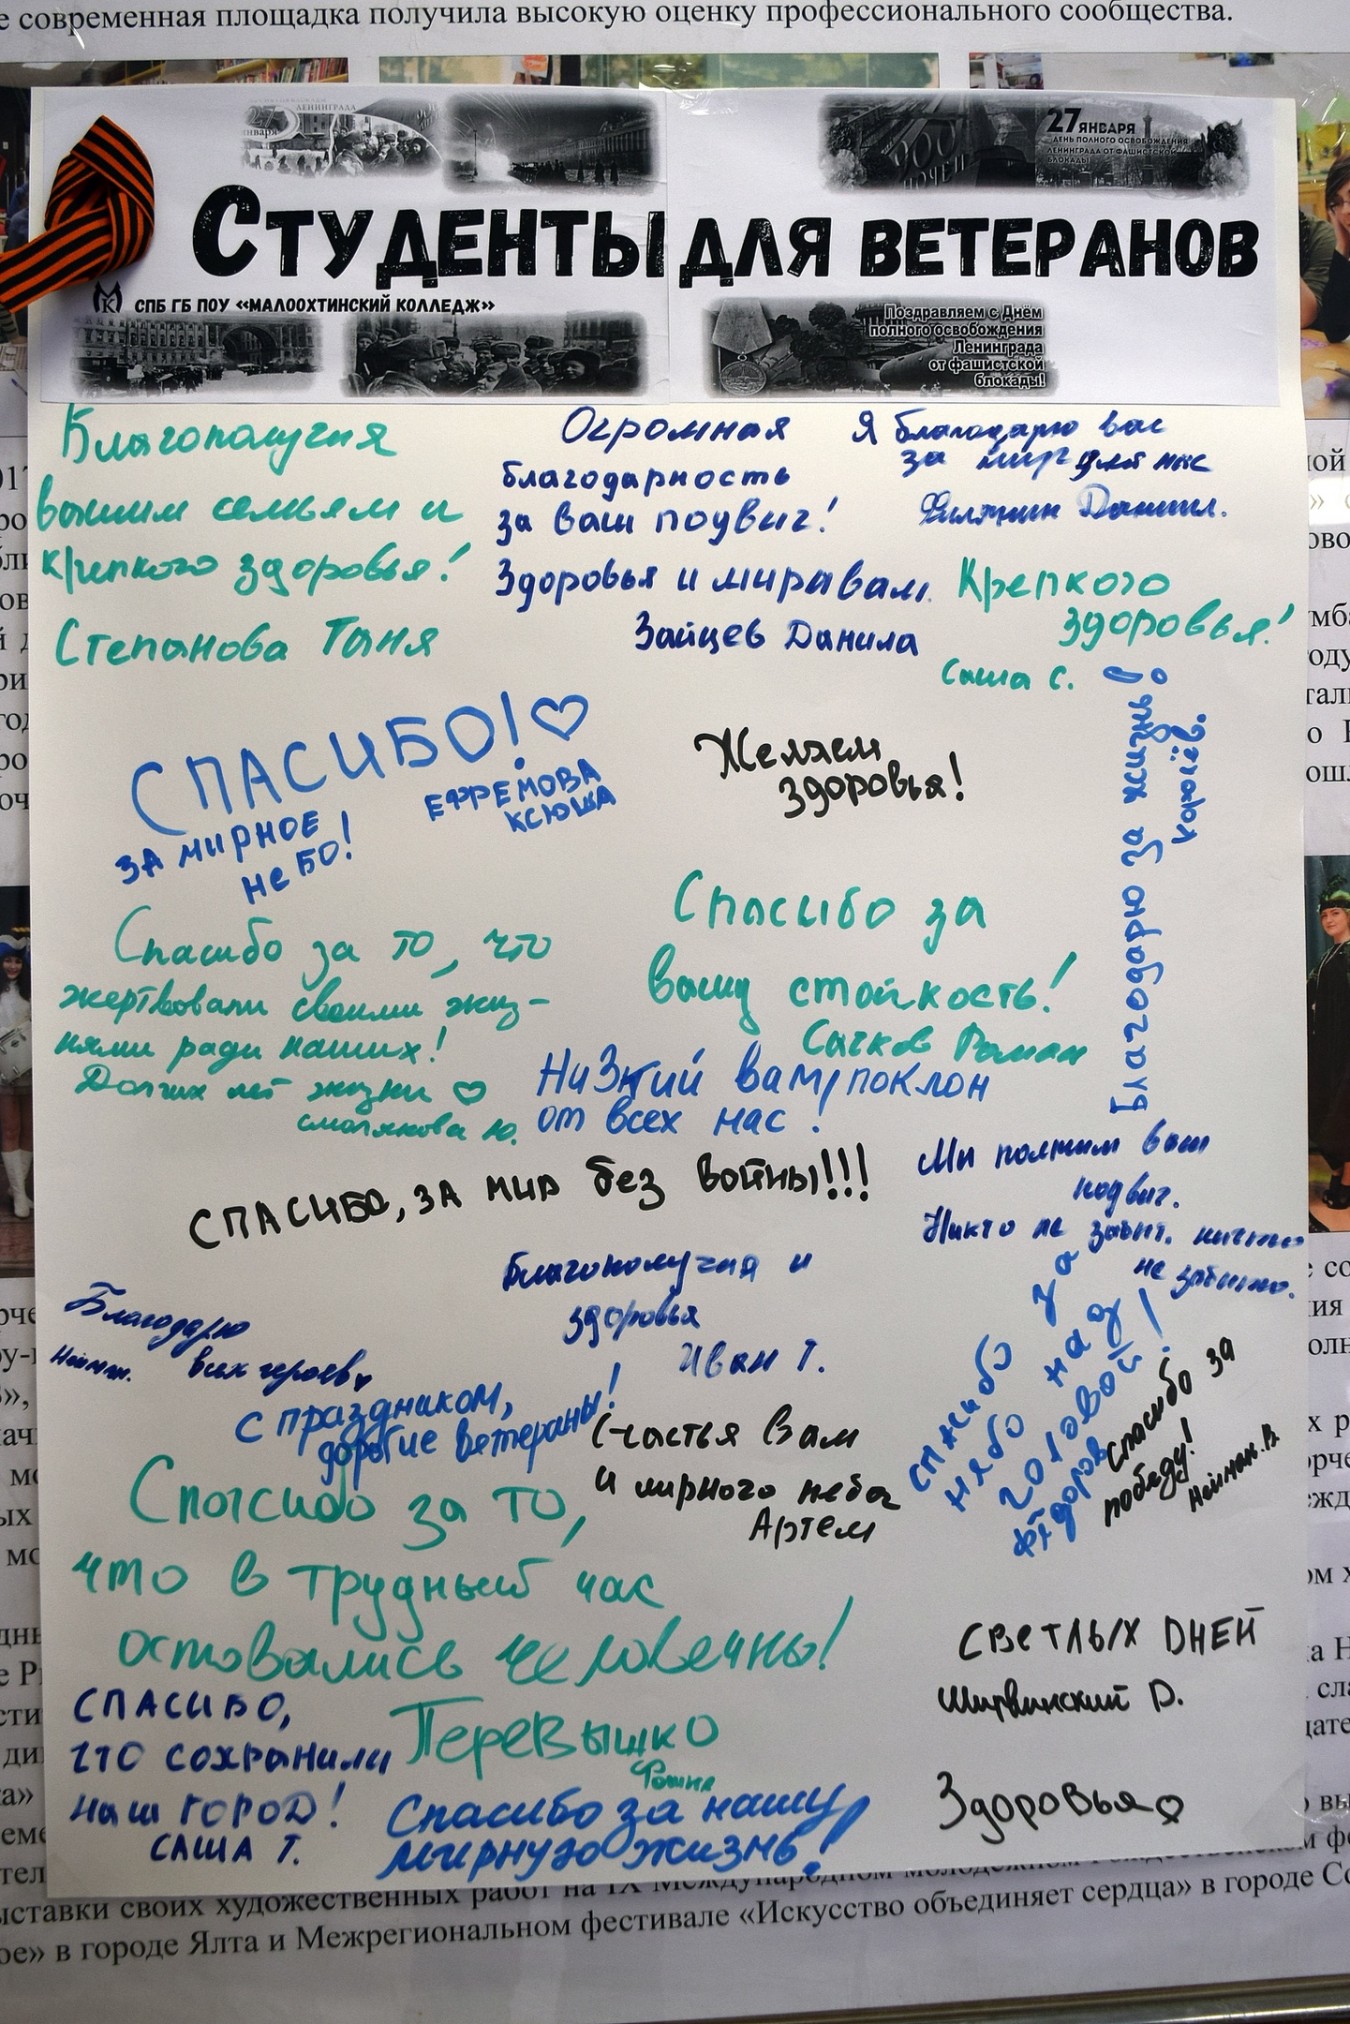 е современная площадка получила высокую оценку профессионального сообщества.
ЛЕНИНГРАДА
января
900
НОЧЕЙ
27 ЯНВАРЯ
ДЕНЬ ПОЛНОГО ОСВОБОЖДЕНИЯ
ЛЕНИНГРАДА ОТ ФАШИСТСКОЙ
БЛОКАДЫ
СТУДЕНТЫ ДЛЯ ВЕТЕРАНОВ
СПБ ГБ ПОУ «МАЛООХТИНСКИЙ КОЛЛЕДЖ»
Поздравляем с Днём
полного освобождения
Ленинграда
от фашистской
блокады!
Благополучия
вашим семьям и
крепкого здоровья!
Степанова Таня
Огромная
благодарность
за ваш подвиг!
Здоровья и мира вам.
Зайцев Данила
Я благодарю вас
за мир для нас
Данил.
Крепкого
здоровья!
Саша С.
СПАСИБО! ♡
ЗА МИРНОЕ
НЕБО!
ЕФРЕМОВА
КСЮША
Желаем
здоровья!
Благодарю за жизнь!
Спасибо за то, что
жертвовали своими жиз-
нями ради наших!
Долгих лет жизни ♡
Смолякова Ю.
Спасибо за
вашу стойкость!
Сачков Роман
Низкий вам поклон
от всех нас!
СПАСИБО, ЗА мир без войны!!!
Мы помним ваш
подвиг.
Никто не забыт. ничто
не забыто.
Благополучия и
здоровья
Иван Т.
Благодарю
всех героев
Нейман.
С праздником,
дорогие ветераны!
Счастья Вам
и мирного неба
Артем
спасибо за
небо над
головой!
Фёдоров
Спасибо за
победу!
Нейман.В.
Спасибо за то,
что в трудный час
оставались человечны!
Перевышко
СПАСИБО,
что сохранили
наш ГОРОД!
САША Т.
Спасибо за нашу
мирную жизнь!
СВЕТЛЫХ ДНЕЙ
Ширвинский D.
Здоровья ♡
ыставки своих художественных работ на IX Международном молодежном
ое» в городе Ялта и Межрегиональном фестивале «Искусство объединяет сердца» в городе Со